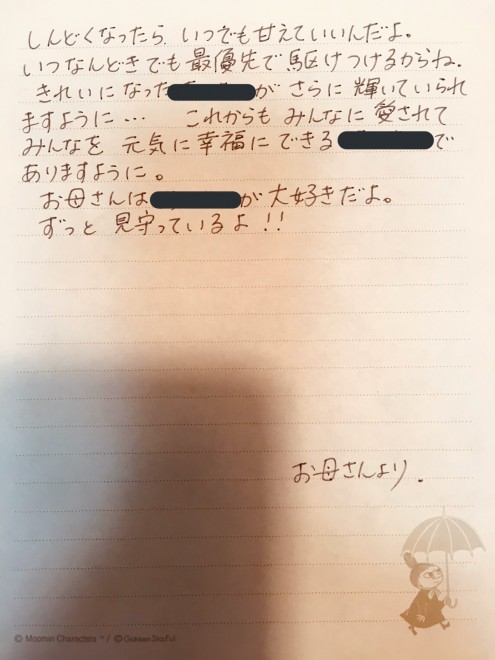 しんどくなったら、いつでも甘えていいんだよ。
いつなんどきでも最優先で駆けつけるからね。
きれいになった が さらに輝いていられ
ますように… これからも みんなに愛されて
みんなを 元気に幸福に できる で
ありますように。
お母さんは が 大好きだよ。
ずっと 見守っているよ!!
お母さんより.
© Moomin Characters ™ / ©